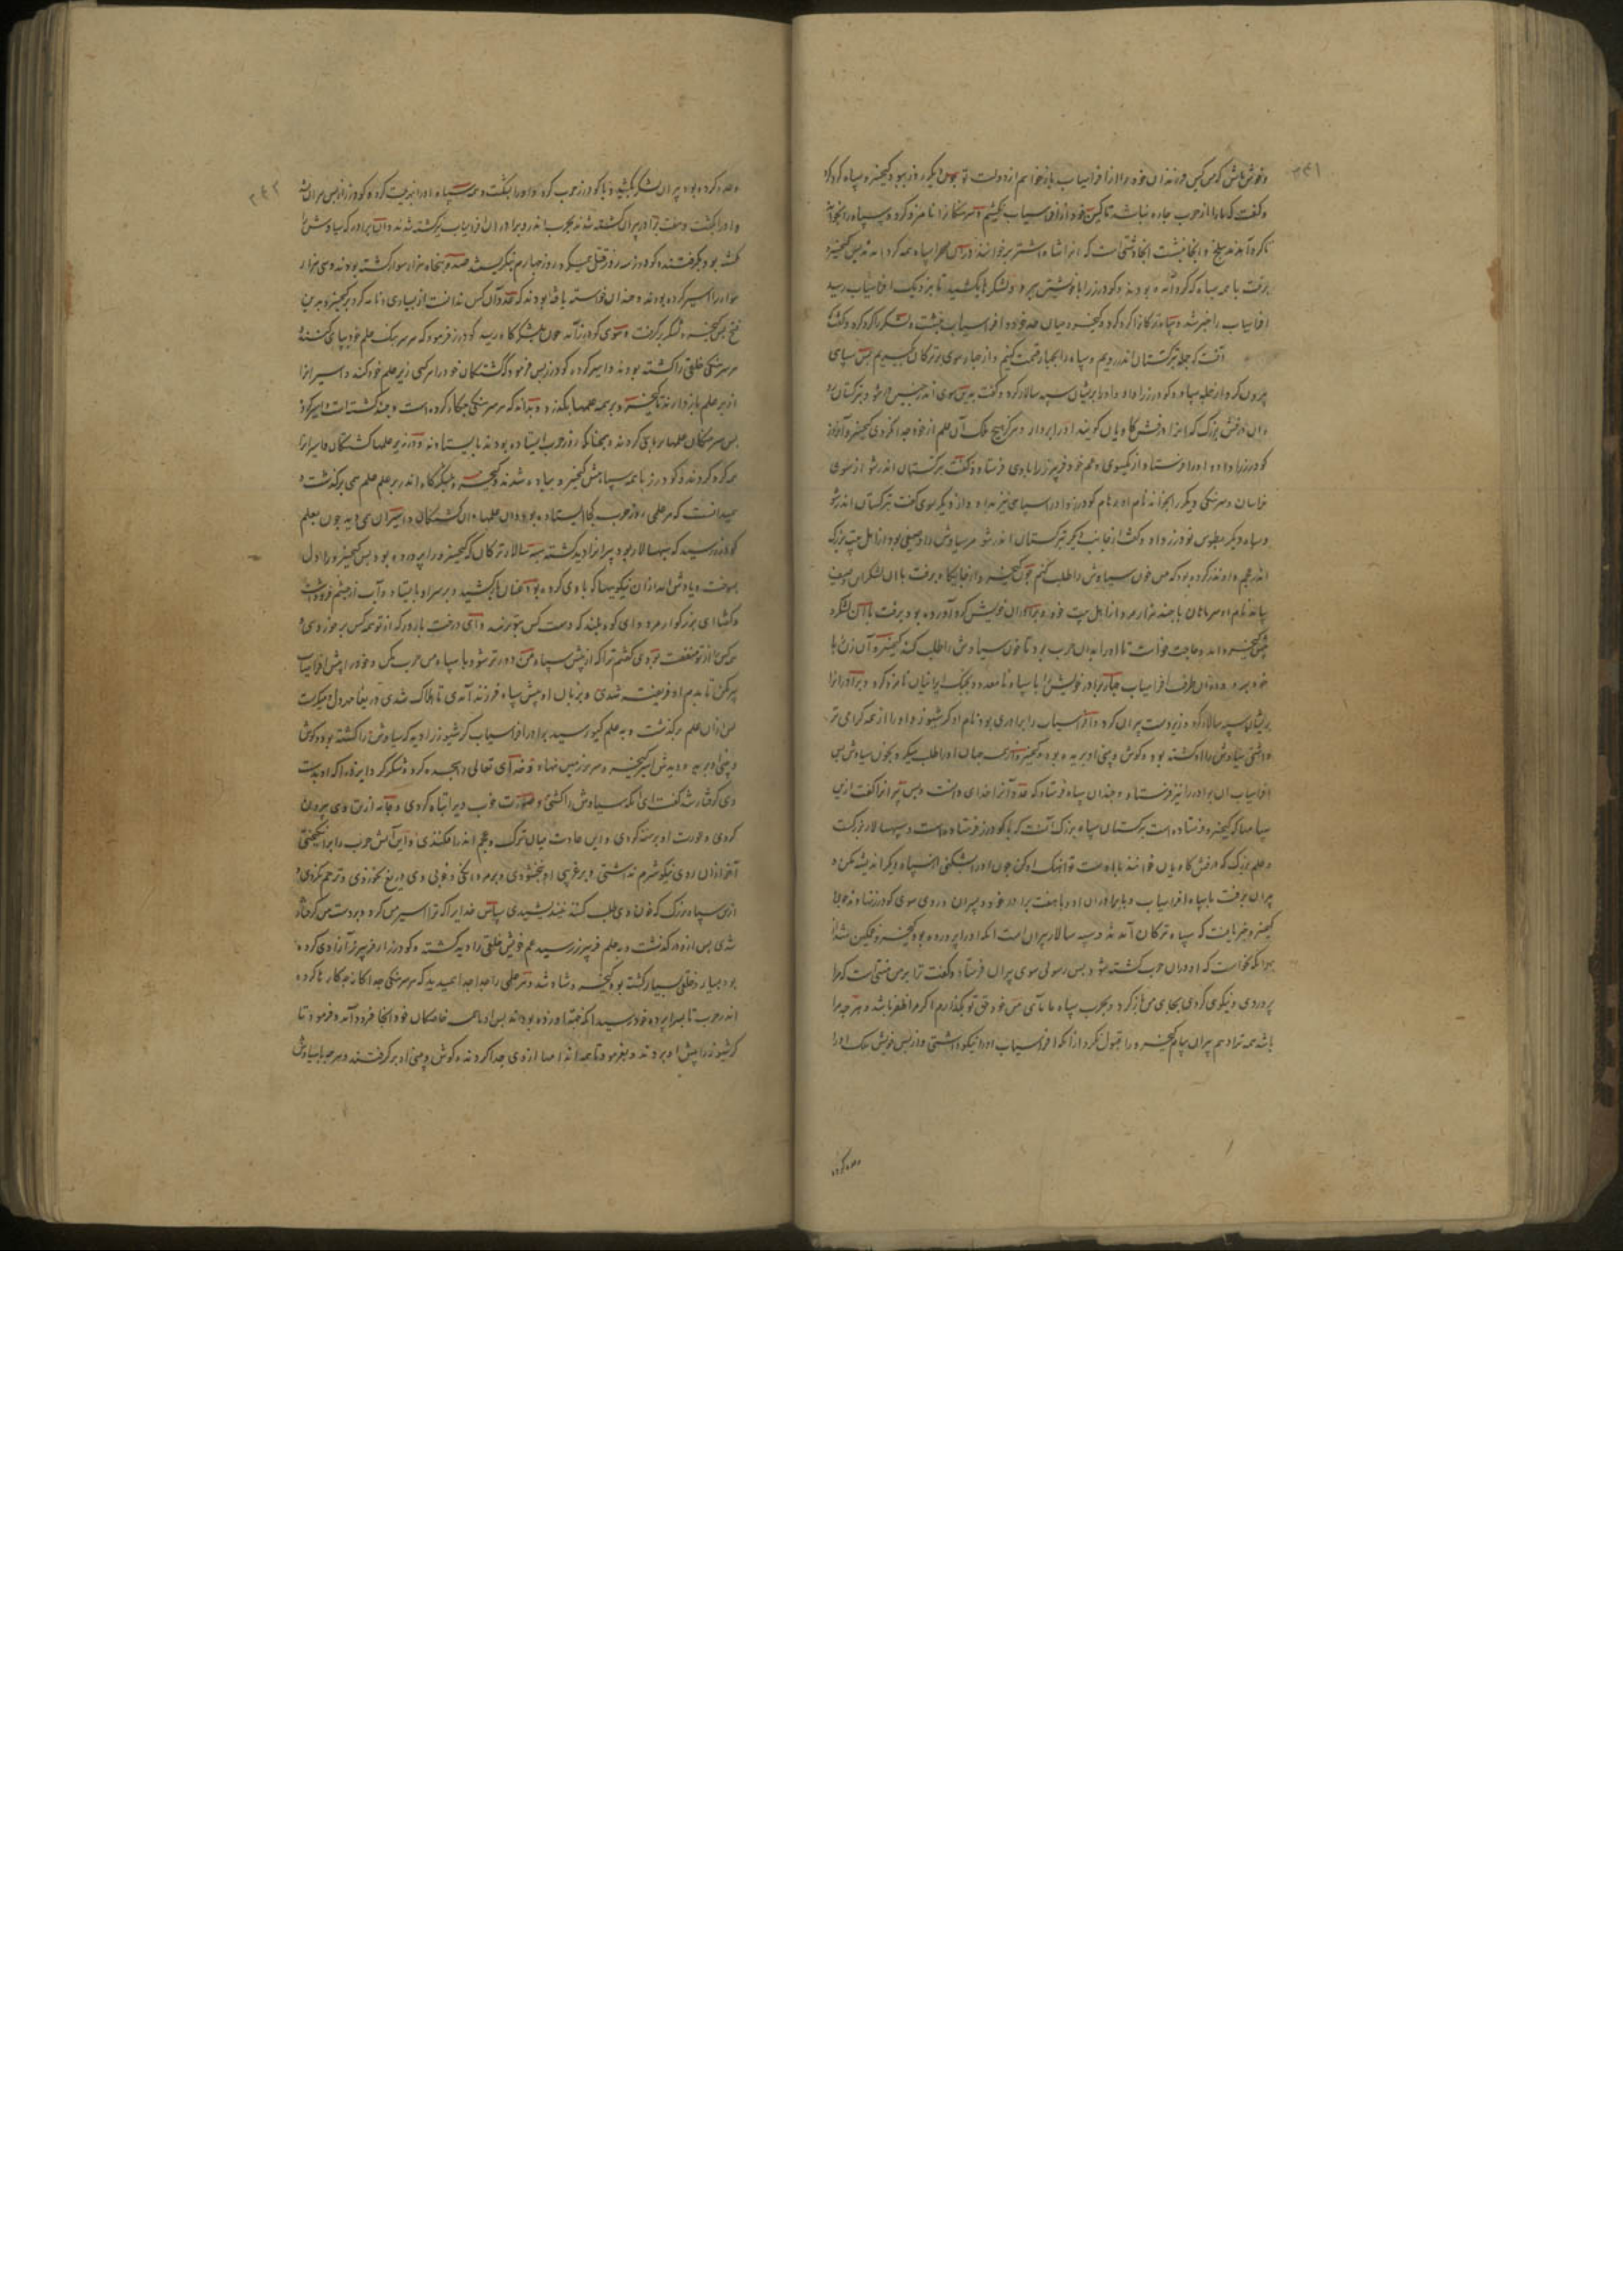 و خوش باش که من کین فرزندان خود را از افراسیاب بازخواهم از دولت تو پس دیگر روز نبود کیخسرو سپاه کرد کرد
و گفت که ما را از حرب چاره نباشد تا کین خود از افراسیاب بکشیم و سرهنگانرا نامزد کرد و سپاه را آنجا
تا گرد آمدند ببلخ و آنجا بنشست آنجا دشتی است که آنرا شاه اشتر برخوانند در آن صحرا سپاه همه گرد آمدند پس کیخسرو
برفت با همه سپاه که گرد آمده بودند و گودرز را با خویشتن ببرد و لشکرها بکشید تا بنزدیک افراسیاب رسید
افراسیاب را خبر شد و سپاه ترکانرا گرد کرد و کیخسرو میان حد خود و افراسیاب بنشست و لشکر را گرد کرد و گفت
آنست که جمله بترکستان اندر رویم و سپاه را بچهار قسمت کنیم و از چهار سوی بر ترکان گیریم پس سپاهی
بیرون کرد از جمله سپاه و گودرز را داد و او را بریشان سپه سالار کرد و گفت بدین سوی اندر شو بترکستان
و آن درفش بزرگ که آنرا درفش کاویان گویند او را برداد و هرگز هیچ ملک آن علم از خود جدا نکردی کیخسرو آنرا
گودرز را داد و او را فرستاد از یکسوی و عم خود فریبرز را با وی فرستاد و گفت بترکستان اندر شو از سوی
خراسان و سرهنگی دیگر را بخواند نام او و نام گودرز و او را سپاهی نیز بداد و از دیگر سوی گفت بترکستان اندر شو
و سپاه دیگر بطوس نوذر داد و گفت از جانب دیگر بترکستان اندر شو مر سیاوش را وصیفی بود از اهل بیت بزرگ
اندر عجم و او نذر کرده بود که من خون سیاوش را طلب کنم چون کیخسرو از جایگاه برفت با آن لشکر آن وصیف
بیامد نام او با چند هزار مرد از اهل بیت خود و برادران خویش گرد آورده بود و برفت با آن لشکر
پیش کیخسرو آمد و حاجت خواست تا او را بدان حرب برد تا خون سیاوش را طلب کند کیخسرو آن زن را با
خود ببرد و از آن طرف افراسیاب چهار برادر خویش را با سپاه نامعدود بجنگ ایرانیان نامزد کرد و پیران را
بریشان سپه سالار کرد و زیردست پیران کرد و افراسیاب را برادری بود نام او کرشیوز و او را از همه گرامی تر
داشتی سیاوش را او کشته بود و گوش و بینی او بریده بود و کیخسرو از همه جهان او را طلب میکرد بخون سیاوش پس
افراسیاب آن برادر را نیز فرستاد و چندان سپاه فرستاد که عدد آنرا خدای دانست و پس پیران را گفت ازین
سپاهها که کیخسرو فرستاده است بترکستان سپاه بزرگ آنست که با گودرز فرستاده است و سپهسالار بزرگ است
و علم بزرگ که درفش کاویان خوانند با اوست تو آهنگ او کن چون او را بشکنی از سپاه دیگر اندیشه مکن و
پیران برفت با سپاه افراسیاب و با برادران او و با هفت برادر خود و پیران روی سوی گودرز نهاد و چون
کیخسرو خبر یافت که سپاه ترکان آمدند و سپه سالار پیران است آنکه او را پرورده بود کیخسرو غمگین شد از
بهر آنکه نخواست که او در آن حرب کشته شود پس رسولی سوی پیران فرستاد و گفت ترا بر من منتی است که مرا
پروردی و نیکوی کردی بجای من بازگرد و بحرب سپاه ما نیای من خود حق تو بگذارم اگر مرا ظفر باشد و هر چه مرا
باشد همه ترا دهم پیران پیام کیخسرو را قبول نکرد از آنکه افراسیاب او را نیکو داشتی و از پس خویش ملک او را
وعده کرده
وعده کرده بود پیران لشکر بکشید و با گودرز حرب کرد و او را بکشت و همه سپاه او را هزیمت کرد و گودرز از پس پیران شد
و او را بکشت و هفت برادر پیران کشته شدند بحرب اندر و برادران افراسیاب نیز کشته شدند و آن برادر که سیاوش را
کشته بود بگرفتند و گودرز سه روز قتل میکرد روز چهارم بنگریست صد و پنجاه هزار سوار کشته بودند و سی هزار
سوار را اسیر کرده بودند و چندان خواسته یافته بودند که عدد آن کس ندانست از بسیاری و نامه کرد بکیخسرو بدین
فتح پس کیخسرو لشکر برگرفت و سوی گودرز آمد چون بلشکرگاه رسید گودرز فرمود که هر سرهنگ علم خود بپای کنند و
هر سرهنگی خلقی را کشته بودند و اسیر کرده گودرز پس فرمود کشتگان خود را هر کسی زیر علم خود کند و اسیرانرا
از زیر علم بازدارند تا کیخسرو بر همه علمها بگذرد و بداند که هر سرهنگی چه کار کرده است و چند کشته است و اسیر کرده
پس سرهنگان علمها برپای کردند و همچنانکه روز حرب ایستاده بودند بایستادند و در زیر علمها کشتگان و اسیرانرا
گرد کردند و گودرز با همه سپاه پیش کیخسرو پیاده شدند و کیخسرو بلشکرگاه اندر بر علم علم همی برگذشت و
میدانست که هر علمی روز حرب کجا ایستاده بود و آن علمها و آن کشتگان و اسیران همی دید چون بعلم
گودرز رسید که سپهسالار بود پیران را دید کشته سپه سالار ترکان که کیخسرو را پرورده بود پس کیخسرو را دل
بسوخت و یادش آمد از آن نیکوییها که با وی کرده بود عنان بازکشید و بر سر او بایستاد و آب از چشم فرو ریخت
و گفت ای بزرگوار مرد و ای کوه بلند که دست کس بتو نرسد و ای درخت بارور که از تو همه کس برخوردی و
هر کس از تو منفعت بودی گفتم ترا که از پیش سپاه من دورتر شو و با سپاه من حرب مکن و خود را پیش افراسیاب
سپر مکن تا بدیدم او فریفته شدی و بزبان او پیش سپاه فرزند آمدی تا هلاک شدی دریغا مر دل و میگریست
پس از آن علم برگذشت و به علم گیو رسید برادر افراسیاب کرشیوز را دید که سیاوش را کشته بود و گوش
و بینی او بریده و دیدش اسیر کیخسرو سر بر زمین نهاد و خدای تعالی را سجده کرد و شکر کرد و ایزد را که او بدست
وی گرفتار شد گفت ای آنکه سیاوش را کشتی و صورت خوب ویرا تباه کردی و جامه از تن وی بیرون
کردی و عورت او برهنه کردی و این عادت میان ترک و عجم اندر افکندی و این آتش حرب را برانگیختی
آخر از آن روی نیکو شرم نداشتی و بر غریبی او نبخشودی و بر مردانگی و خوبی وی دریغ نخوردی و ترحم نکردی و
ازین سپاه بزرگ که خون وی طلب کنند نیندیشیدی سپاس خدایرا که ترا اسیر من کرد و بدست من گرفتار
شدی پس از او درگذشت و به علم فریبرز رسید عم خویش خلقی را دید کشته و گودرز از فریبرز آزادی کرده
بود بسیار و خلقی بسیار کشته بود کیخسرو شاد شد و هر علمی را جدا جدا همی دید که هر سرهنگی جدا گانه چه کارها کرده
اندر حرب تا بسراپرده خود رسید آنکه خیمه او زده بودند پس او با همه خاصگان خود آنجا فرود آمد و فرمود تا
کرشیوز را پیش او بردند و بفرمود تا همه اندامها از وی جدا کردند و گوش و بینی او برگرفتند و هر چه با سیاوش